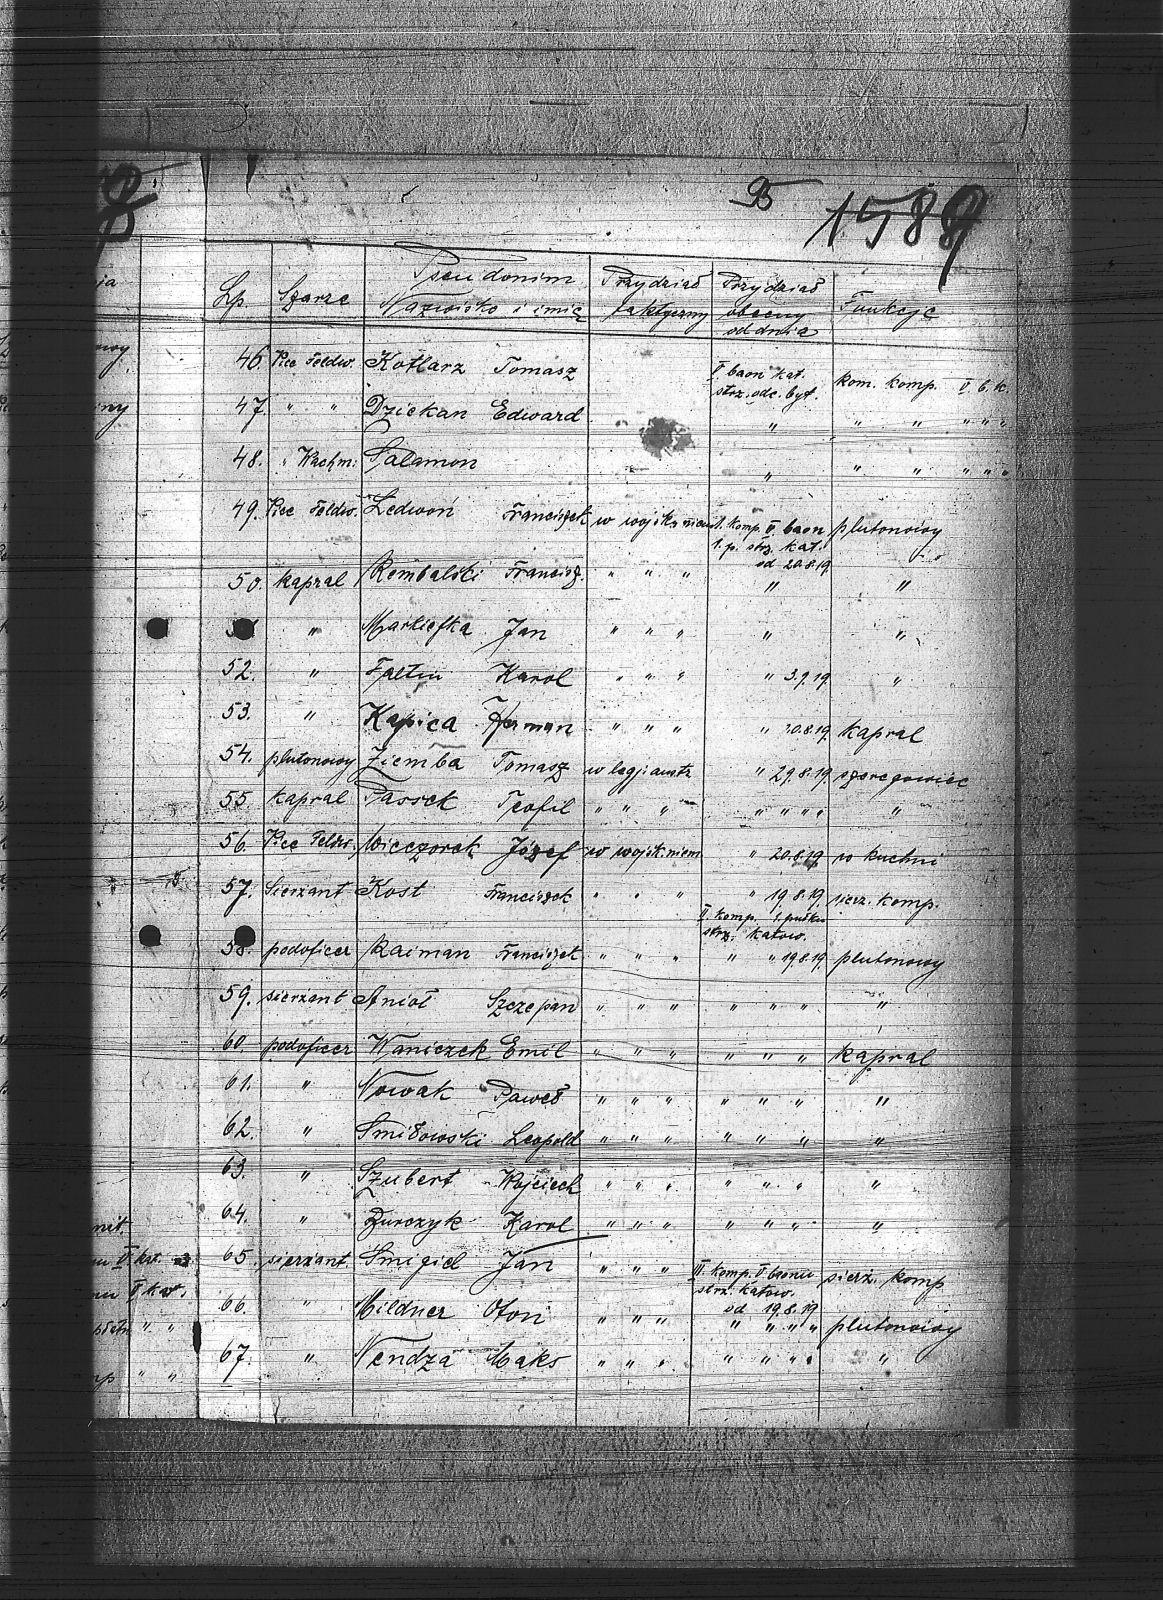 B 1589
Lp. Szarże Pseudonim Nazwisko i imię Przydział faktyczny Przydział obecny od dnia Funkcje
46. Vice Feldw. Kotlarz Tomasz II baon kat. strz. odc. byt. kom. komp. II b. k.
47. " " Dziekan Edward " " " " " "
48. " Wachm. Salamon " " " " " "
49. Vice Feldw. Ledwoń Franciszek w wojsk. niem. 1. komp. II baon 1. p. strz. kat. od 20.8.19 plutonowy
50. kapral Rembalski Francisz. " " " " "
" Markiefka Jan " " " " "
52. " Faltin Karol " " " " 3.9.19 "
53. " Kapica Herman " " " " 20.8.19 kapral
54. plutonowy Ziemba Tomasz w legji austr. " 29.8.19 szeregowiec
55. kapral Passek Teofil " " " " " " " "
56. Vice Feldw. Wieczorek Józef w wojsk. niem. " 20.8.19 w kuchni
57. Sierżant Kost Franciszek " " " " 19.8.19 sierż. komp.
58. podoficer Raiman Franciszek " " " II komp. 1. pułku strz. katow. " " 19.8.19 plutonowy
59. sierżant Anioł Szczepan " " " " " " "
60. podoficer Waniczek Emil " " " " " " kapral
61. " Nowak Paweł " " " " " " "
62. " Smiłowski Leopold " " " " " " "
63. " Szubert Wojciech " " " " " " "
64. " Zurczyk Karol " " " " " " "
65. sierżant Smigiel Jan " " " III. komp. II baonu strz. katow. od 19.8.19 sierż. komp
66. " Mildner Oton " " " " " " " plutonowy
67. " Nendza Maks " " " " " " " "